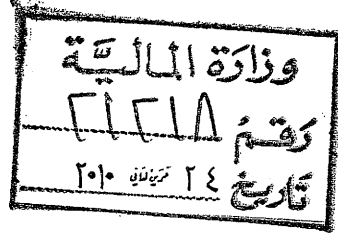 وزارة المالية
رقم ٢١٢١٨
تاريخ ٢٤ تشرين ثاني ٢٠١٠